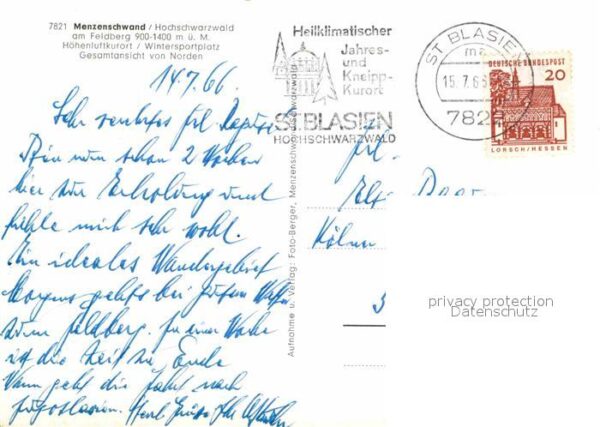 7821 Menzenschwand / Hochschwarzwald
am Feldberg 900-1400 m ü. M.
Höhenluftkurort / Wintersportplatz
Gesamtansicht von Norden
14.7.66.
Sehr verehrtes Frl.
Bin nun schon 2 Wochen
hier zur Erholung und
fühle mich sehr wohl.
Ein ideales Wandergebiet
Morgen geht's bei gutem
zum Feldberg. In einer Woche
ist die Zeit zu Ende
Dann geht die Fahrt nach
Jugoslawien. Herzl. Grüße Ihr
Aufnahme u. Verlag: Foto-Berger, Menzenschwand/Hochschwarzwald
Heilklimatischer
Jahres-
und
Kneipp-
Kurort
ST. BLASIEN
HOCHSCHWARZWALD
ST BLASIEN
ma
15.7.66
7822
DEUTSCHE BUNDESPOST
20
LORSCH/HESSEN
Frl.
Kölner
3
privacy protection
Datenschutz